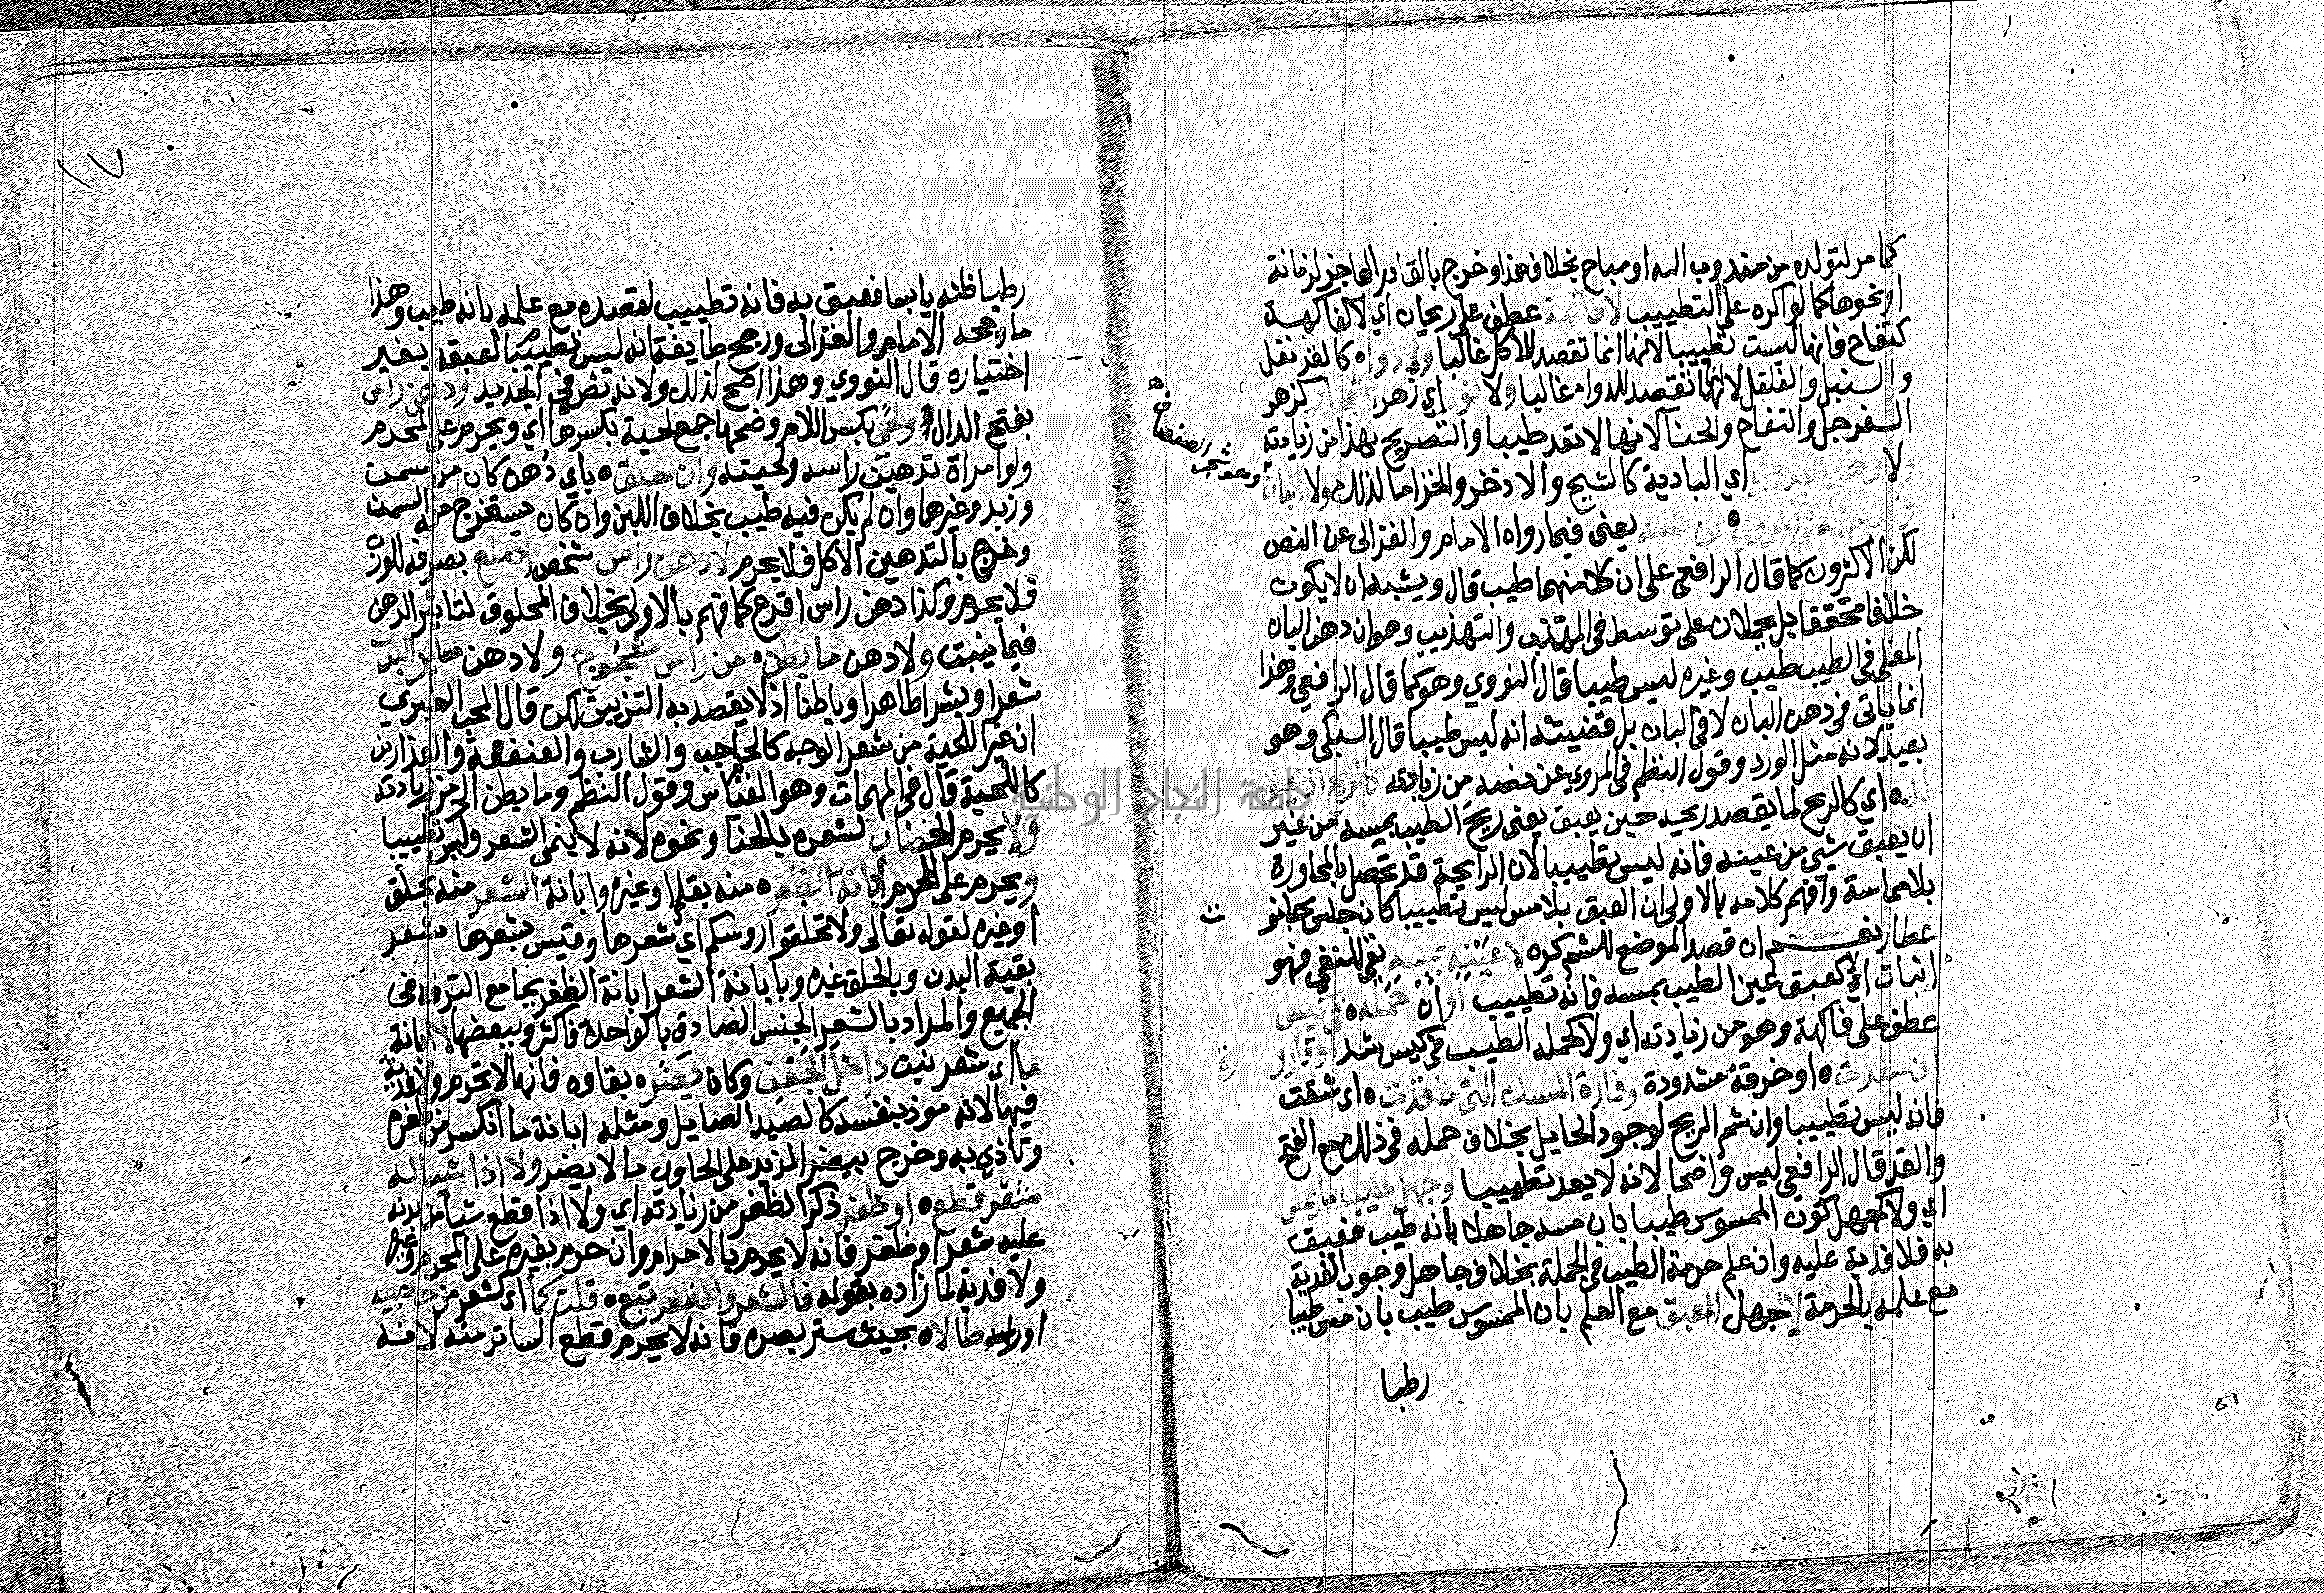 كما مر لتولده من مندوب اليه او مباح بخلاف هذا وخرج بالقادر العاجز لزمانة
او نحوها كما لو اكره على التطييب لا فاكهة عطف على ريحان اي لا لفاكهة
كتفاح فانها ليست تطييبا لانها انما تقصد للاكل غالبا ولا دواء كالقرنفل
والسنبل والفلفل لانها تقصد للدواء غالبا ولا نور اي زهر اشجار كزهر
السفرجل والتفاح والحنا لانها لا تعد طيبا والتصريح بهذا من زيادته
وهو شجر
لا زهر البدو اي البادية كالشيح والاذخر والخزاما لذلك ولا البان
في المروي عن نصه يعني فيما رواه الامام والغزالي عن النص
لكن الاكثرون كما قال الرافعي على ان كلا منهما طيب قال ويشبه ان لا يكون
خلافا محققا بل يحملان على توسط في المهذب والتهذيب وهو ان دهن البان
المغلي في الطيب طيب وغيره ليس طيبا قال النووي وهو كما قال الرافعي وهذا
انما ياتي في دهن البان لا في البان بل قضيته انه ليس طيبا قال السبكي وهو
بعيد لانه مثل الورد وقول النظم في المروي عن نصه من زيادته كالريح
اي كالريح لما يقصد ريحه حين يعبق يعني ريح الطيب بمسه من غير
ان يعبق شي من عينه فانه ليس تطييبا لان الرايحة قد تحصل بالمجاورة
بلا مماسة وافهم كلامه بالاولى ان العبق بلا مس ليس تطييبا كان جلس بحانوت
عطار نعم ان قصد الموضع للشم كره لا عينه بمسه نفي للنفي فهو
اثبات اي لا كعبق عين الطيب بمسه فانه تطييب او ان حمله في كيس
عطف على فاكهة وهو من زيادته اي ولا كحمله الطيب في كيس شد او قارورة
ان سدت او خرقة مشدودة وفارة المسك التي ما قدت اي شقت
فانه ليس تطييبا وان شم الريح لوجود الحايل بخلاف حمله في ذلك مع الفتح
والقد قال الرافعي ليس واضحا لانه لا يعد تطييبا وجهل طيب ما يمس
اي ولا كجهل كون الممسوس طيبا بان مسه جاهلا بانه طيب فعبق
به فلا فدية عليه وان علم حرمة الطيب في الجملة بخلاف جاهل وجوب الفدية
مع علمه بالحرمة لا جهل العبق مع العلم بان الممسوس طيب بان مس طيبا
رطبا
١٧
رطبا ظنه يابسا فعبق به فانه تطييب لقصده مع علمه بانه طيب وهذا
ما رجحه الامام والغزالي ورجح طايفة انه ليس تطييبا لعبقه بغير
اختياره قال النووي وهذا اصح لذلك ولانه نص في الجديد ودهن راس
بفتح الدال ولحى بكسر اللام وضمها جمع لحية بكسرها اي ويحرم على المحرم
ولو امراة تدهين راسه ولحيته وان حلقه باي دهن كان من سمن
وزبد وغيرهما وان لم يكن فيه طيب بخلاف اللبن وان كان يستخرج منه السمن
وخرج بالتدهين الاكل فلا يحرم لا دهن راس شخص اصلع بصرفه للوزن
فلا يحرم وكذا دهن راس اقرع كما فهم بالاولى بخلاف المحلوق لتاثير الدهن
فيما ينبت ولا دهن ما بطن من راس مشجوج ولا دهن ساير البدن
شعرا وبشرا ظاهرا وباطنا اذ لا يقصد به التزيين لكن قال المحب الطبري
ان غير اللحية من شعر الوجه كالحاجب والشارب والعنفقة والعذارين
كاللحية قال في المهمات وهو القياس وقول النظم وما بطن الى من زيادته
ولا يحرم الخضاب لشعره بالحنا ونحوه لانه لا ينمي الشعر وليس تطييبا
ويحرم على المحرم ابانة الظفر منه بقلم او غيره وابانة الشعر منه بحلق
او غيره لقوله تعالى ولا تحلقوا روسكم اي شعرها وقيس بشعرها شعر
بقية البدن وبالحلق غيره وبابانة الشعر ابانة الظفر بجامع الترفه في
الجميع والمراد بالشعر الجنس الصادق بالواحدة فاكثر وببعضها لا ابانة
ما اي شعر نبت داخل الجفن وكان يضره بقاوه فانها لا تحرم ولا فدية
فيها لانه موذ بنفسه كالصيد الصايل ومثله ابانة ما انكسر من ظفره
وتاذي به وخرج بيضر المزيد على الحاوي ما لا يضر ولا اذا شيا له
شعر قطع او ظفر ذكر الظفر من زيادته اي ولا اذا قطع شيا من بدنه
عليه شعر او ظفر فانه لا يحرم بالاحرام وان حرم بغيره على المحرم وغيره
ولا فدية لما زاده بقوله فالشعر والظفر تبع قلت كما اي كشعر من حاجبيه
او راسه طالا بحيث ستر بصره فانه لا يحرم قطع الساتر منه لانه
جامعة النجاح الوطنية